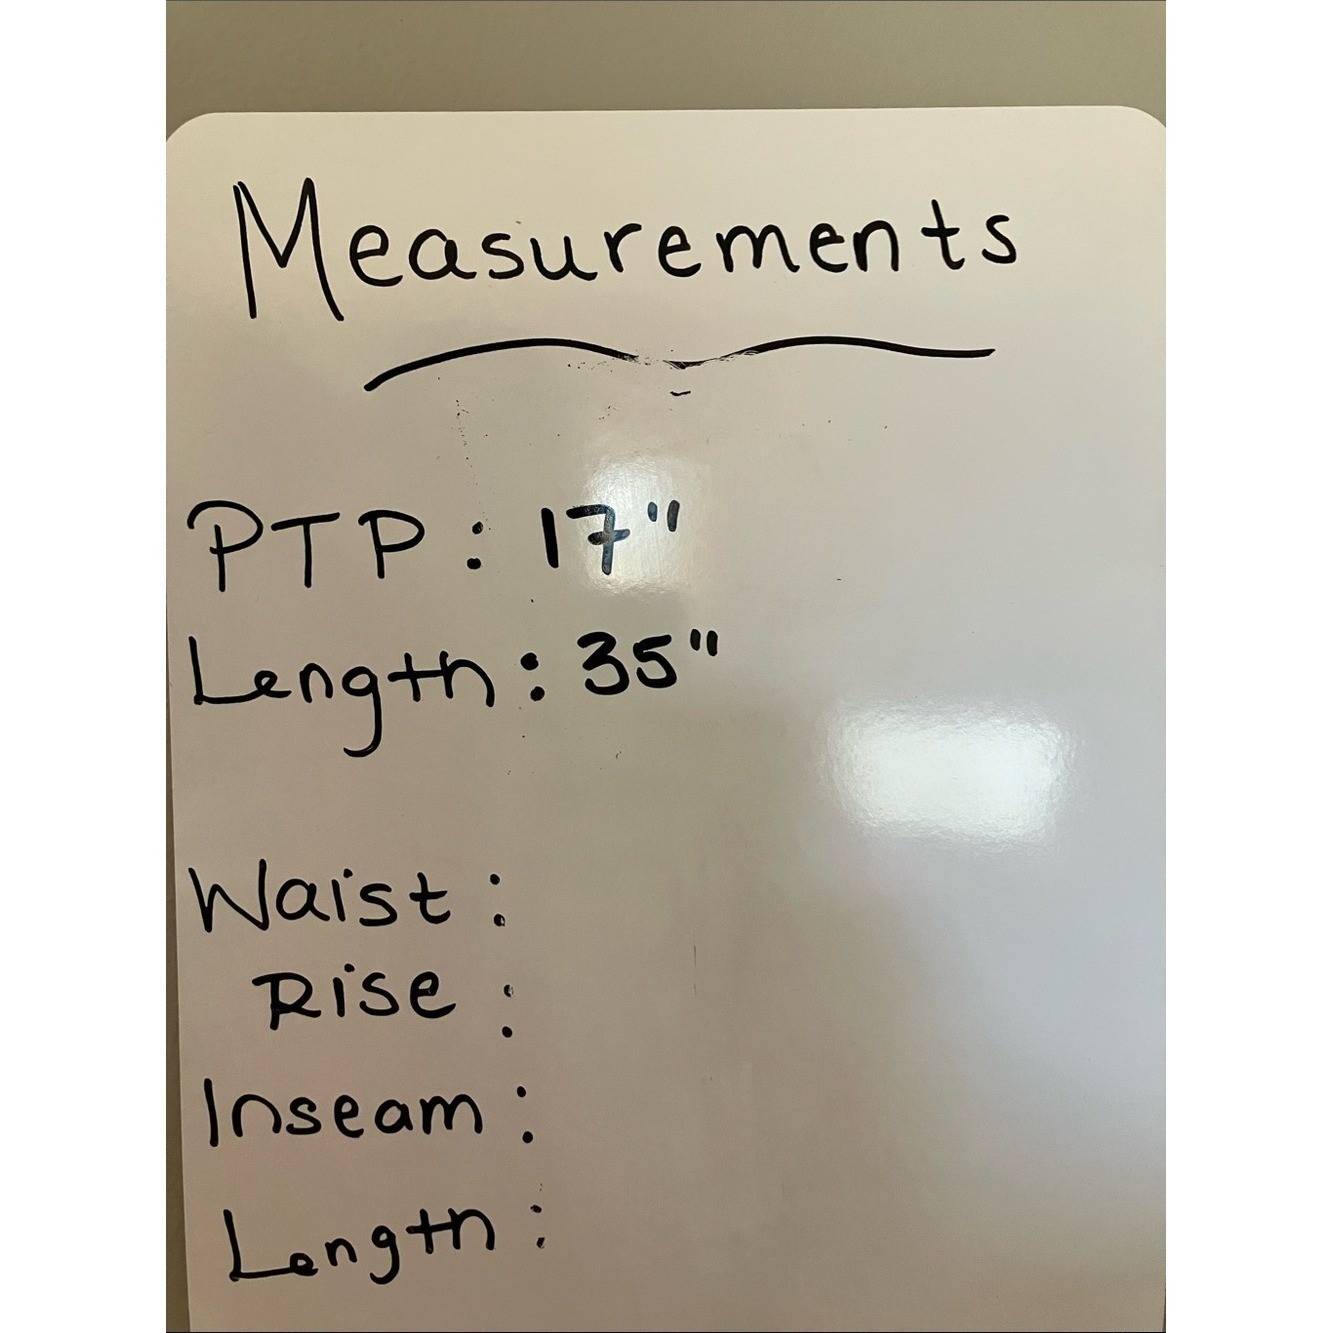 Measurements
PTP: 17"
Length: 35"
Waist:
Rise:
Inseam:
Length: